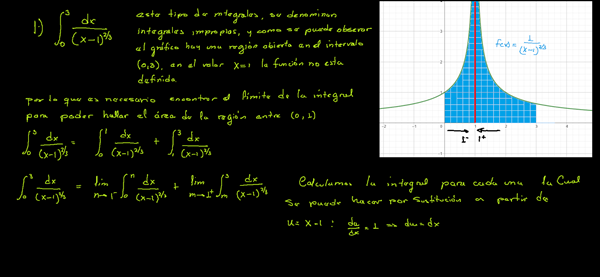 1) ∫₀³ dx/(x-1)^{2/3}
esta tipo de integrales, se denominan
integrales impropias, y como se puede observar
al gráfico hay una región abierta en el intervalo
(0,3), en el valor x=1 la función no esta
definida
por lo que es necesario encontrar el límite de la integral
para poder hallar el área de la región entre (0,1)
∫₀³ dx/(x-1)^{2/3} = ∫₀¹ dx/(x-1)^{2/3} + ∫₁³ dx/(x-1)^{2/3}
∫₀³ dx/(x-1)^{2/3} = lim n→1⁻ ∫₀ⁿ dx/(x-1)^{2/3} + lim m→1⁺ ∫ₘ³ dx/(x-1)^{2/3}
Calculamos la integral para cada una la cual
se puede hacer por sustitución a partir de
u = x-1 : du/dx = 1 ⇒ du = dx
f(x) = 1/(x-1)^{2/3}
4
3
2
1
-2 0 2 4
-1
1⁻ 1⁺